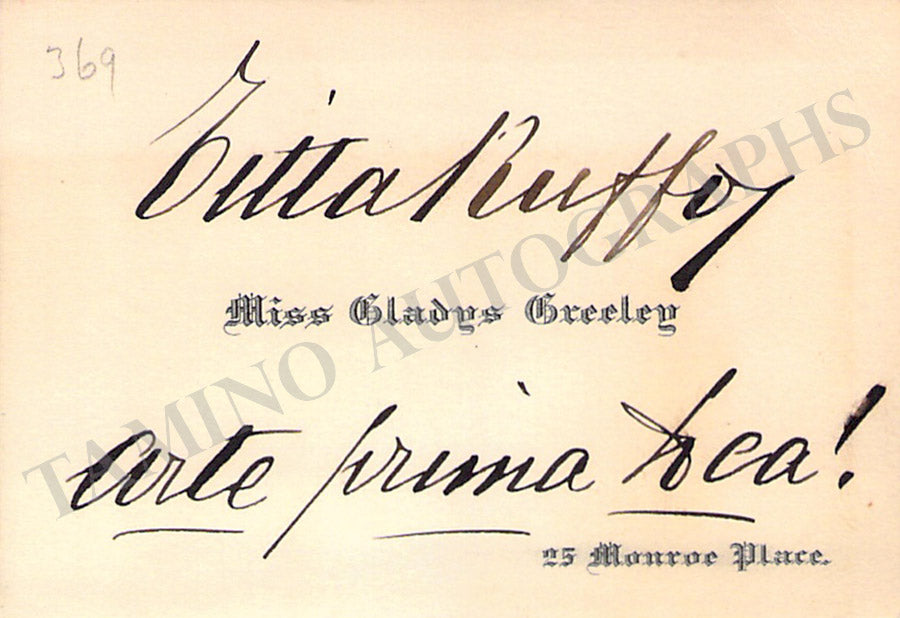 369
Titta Ruffo
Miss Gladys Greeley
Arte prima Dea!
25 Monroe Place.
TAMINO AUTOGRAPHS